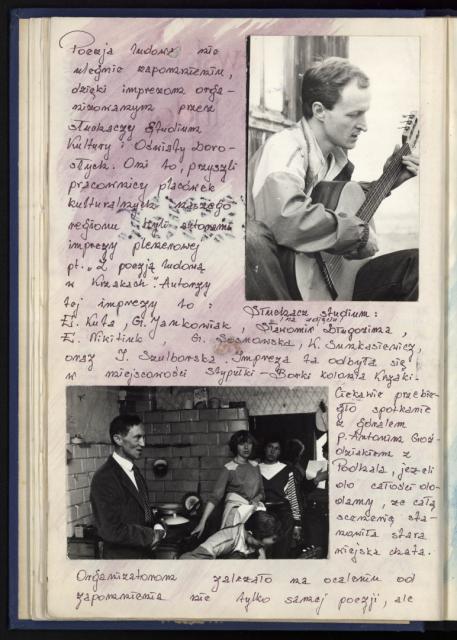 Poezja ludowa nie
ulegnie zapomnieniu,
dzięki imprezom orga-
nizowanym przez
słuchaczy Studium
Kultury i Oświaty Doro-
słych. Oni to, przyszli
pracownicy placówek
kulturalnych naszego
regionu byli autorami
imprezy plenerowej
pt. „Z poezją ludową
w Krzakach". Autorzy
tej imprezy to:
Słuchacz studium:
/na zdjęciu/
E. Kuta, G. Jankowiak, Sławomir Długozima,
E. Nikitiuk, G. Sosnowska, K.
oraz J. Szulborska. Impreza ta odbyła się
w miejscowości Stypułki - Borki kolonia Krzaki.
Ciekawie przebie-
gło spotkanie
z góralem
p. Antonim
z
Podhala, jeżeli
do całości do-
damy, że całą
scenerię sta-
nowiła stara
wiejska chata.
Organizatorom zależało na ocaleniu od
zapomnienia nie tylko samej poezji, ale